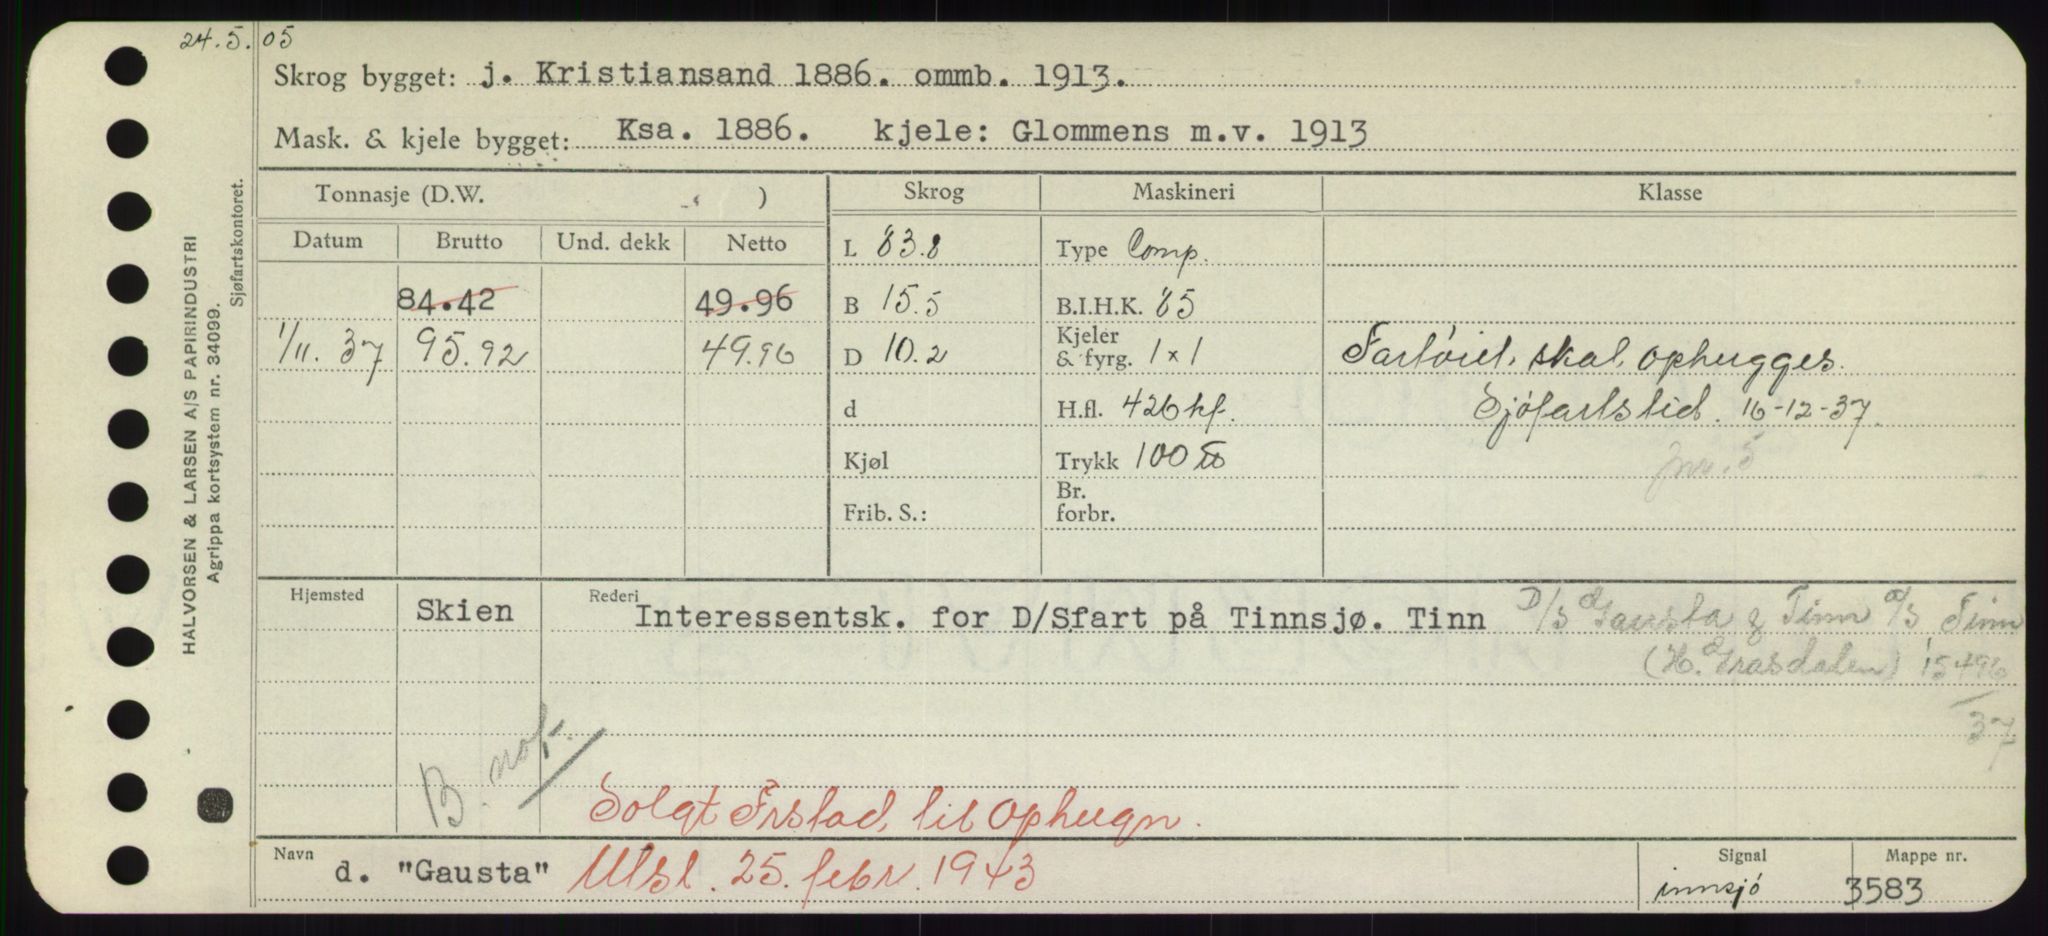 24.5.05
Skrog bygget: j. Kristiansand 1886. ommb. 1913.
Mask. & kjele bygget: Ksa. 1886. kjele: Glommens m.v. 1913
Tonnasje (D.W. )
Skrog Maskineri Klasse
Datum Brutto Und. dekk Netto
L 83.8 Type Comp.
84.42 49.96
B 15.5 B.I.H.K. 85
1/11. 37 95.92 49.96
D 10.2 Kjeler & fyrg. 1x1 Fartöiet skal ophugges.
d H.fl. 426 kf. Sjöfartstid. 16-12-37.
Kjøl Trykk 100 jnr. 5
Frib. S.: Br. forbr.
Hjemsted Skien Rederi Interessentsk. for D/Sfart på Tinnsjø. Tinn D/S Gausta & Tinn A/S Tinn
(H. Grasdalen) 15496
37
B. not.
Solgt Frstad til Ophugn.
Navn d. "Gausta" Utsl. 25. febr. 1943
Signal innsjö
Mappe nr. 3583
HALVORSEN & LARSEN A/S PAPIRINDUSTRI
Agrippa kortsystem nr. 34099.
Sjøfartskontoret.